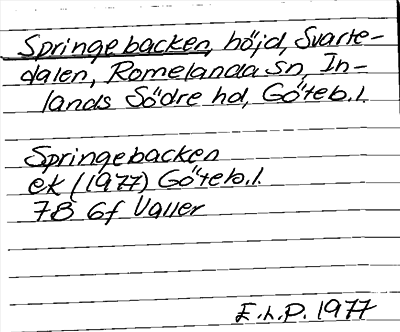 Springebacken, höjd, Svarte-
dalen, Romelanda sn, In-
lands Södre hd, Göteb.l.
Springebacken
ek (1977) Göteb.l.
7B 6f Valler
E.h.P. 1977